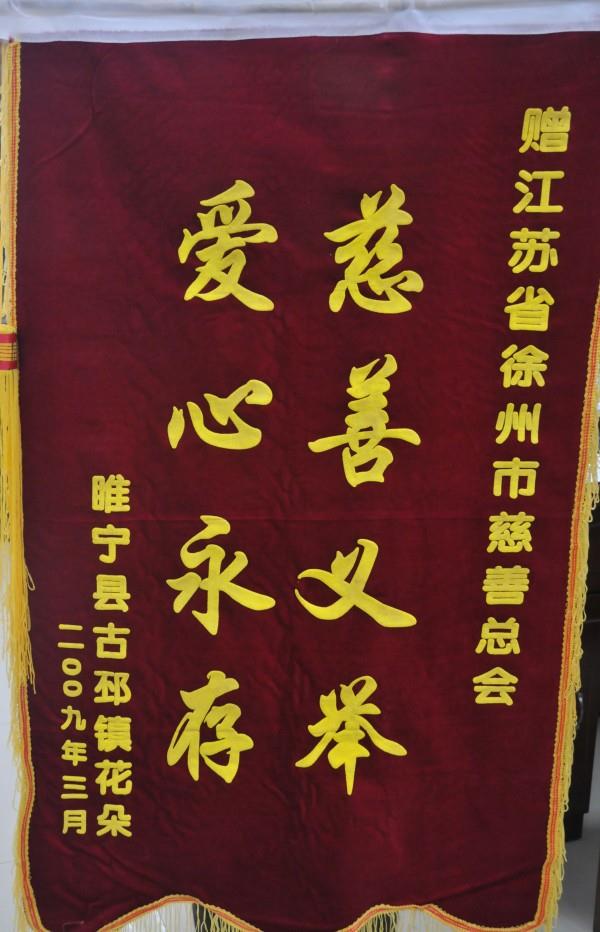 赠江苏省徐州市慈善总会
慈善义举
爱心永存
睢宁县古邳镇花朵
二00九年三月